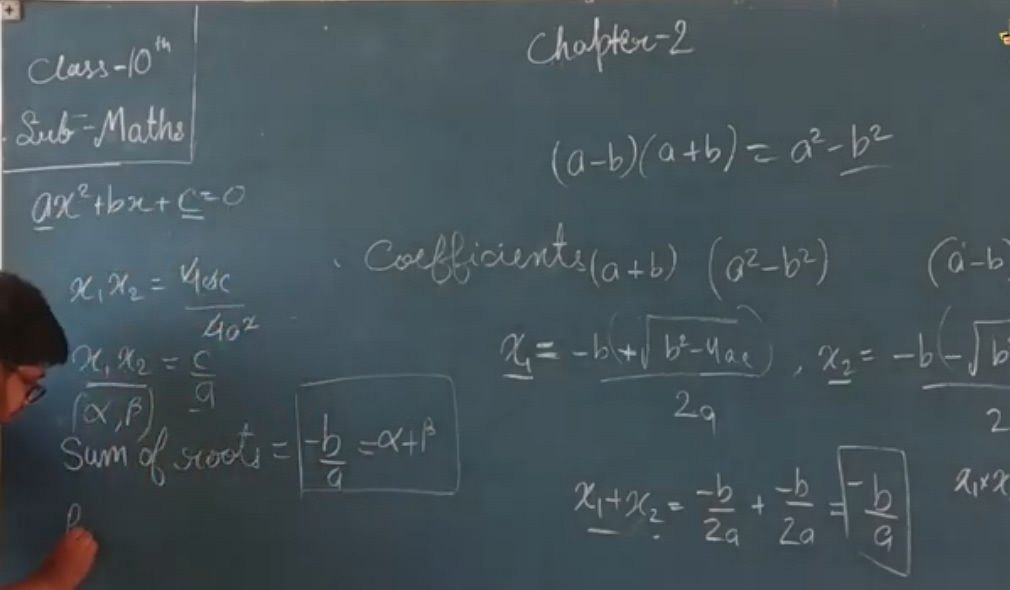 Class-10th
Sub-Maths
Chapter-2
(a-b)(a+b) = a²-b²
ax²+bx+c=0
Coefficients (a+b) (a²-b²) (a-b)
x₁x₂ = 4ac/4a²
x₁ = -b+√b²-4ac/2a , x₂ = -b-√b
2
x₁x₂ = c/a
(α,β)
Sum of roots = -b/a = α+β
x₁+x₂ = -b/2a + -b/2a = -b/a
x₁×x